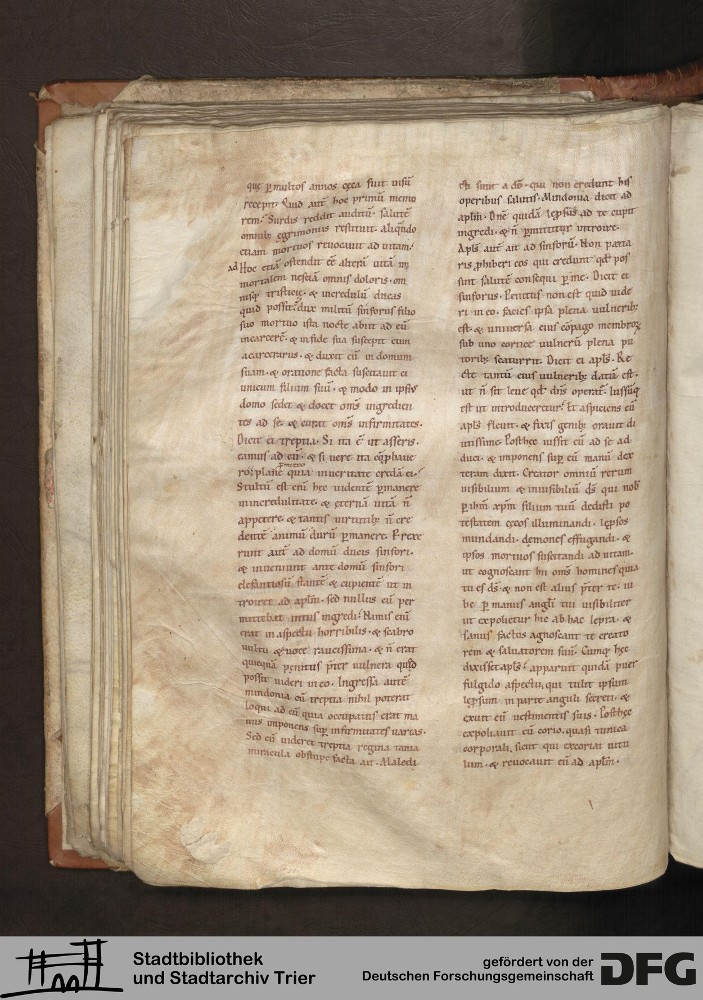 que ꝑmultos annos cęca fuit uisū
recepit. Quid autē hoc primū memo
rem? Surdis reddit auditū. salutē
omnib; egrimoniis restituit. aliqndo
etiam mortuos reuocauit ad uitam.
ad Hoc etiā ostendit cē alterā uitā in
mortalem nesciā omnis doloris. om
nisq; tristicię. & incredulū ducas
quid possit. dux militū sinforus filio
suo mortuo ista nocte abiit ad eū
incarcerē. & infide sua suscepit eum
acarcerarius. & duxit eū in domum
suam. & oratione facta suscitauit ei
unicum filium suū. & modo in ipsius
domo sedet & docet oms ingredien
tes ad se. & curat oms infirmitates.
Dicit ei treptia. Si ita ē ut asseris.
eamus ad eū. & si uere ita
plane quia inueritate credā ei.
Stultū est enī hęc uidentē ꝑmanere
inincredulitate. & eternā uitā n̄
appetere. & tantis uirtutib; n̄ cre
dentē animū durū ꝑmanere. Perrexe
runt autē ad domū ducis sinfori.
& inueniunt ante domū sinfori
elefantiosū stantē & cupientē ut in
troiret ad aplm̄. sed nullus eū per
mittebat intus ingredi. Nimis enī
erat in aspectu horribilis. & scabro
uultu & uoce raucissima. & n̄ erat
quicquā penitus p̄ter uulnera quod
possit uideri in eo. Ingressa autē
mindonia cū treptia nihil poterat
loqui ad eū quia occupatus erat ma
nus imponens suꝑ infirmitates uarias.
Sed cū uideret treptia regina tanta
miracula obstupefacta ait. Maledi
cti sunt a dō. qui non credunt his
operibus salutis. Mindonia dicit ad
aplm̄. Dn̄e quidā lepsus ad te cupit
ingredi. & n̄ ꝑmittitur introire.
Apls autē ait ad sinforū. Non pacta
ris ꝓhiberi eos qui credunt qd̄ pos
sint salutē consequi ꝑ me. Dicit ei
sinforus. Penitus non est quid uide
ri in eo. facies ipsa plena uulnerib;
est. & uniuersa eius cōpago membroꝝ
sub uno cornee uulnerū plena pu
torib; scaturrit. Dicit ei apls. Re
cte tantū eius uulnerib; datū est.
ut n̄ sit leue qd̄ dns operat̄. Iussūq;
est ut introduceretur. Et aspiciens eū
apls fleuit. & fixis genib; orauit di
utissime. Posthęc iussit eū ad se ad
duci. & imponens suꝑ eū manū dex
teram dixit. Creator omniū rerum
uisibilium & inuisibiliū dš qui nob̄
ꝑ ihm̄ xpm̄ filium tuū dedisti po
testatem cęcos illuminandi. lepsos
mundandi. dęmones effugandi. &
ipsos mortuos suscitandi ad uitam.
ut cognoscant hii oms̄ homines quia
tu es dš & non est alius p̄ter te. iu
be ꝑ manus angli tui uisibiliter
ut expolietur hic ab hac lepra. &
sanus factus agnoscant te creato
rem & saluatorem suū. Cumq; hęc
dixisset apls. apparuit quidā puer
fulgido aspectu, qui tulit ipsum
lepsum in parte anguli secreti. &
exuit eū uestimentis suis. Posthęc
expoliauit eū corio, quasi tunica
corporali, sicut qui excoriat uitu
lum. & reuocauit eū ad aplm̄.
Stadtbibliothek
und Stadtarchiv Trier
gefördert von der
Deutschen Forschungsgemeinschaft
DFG